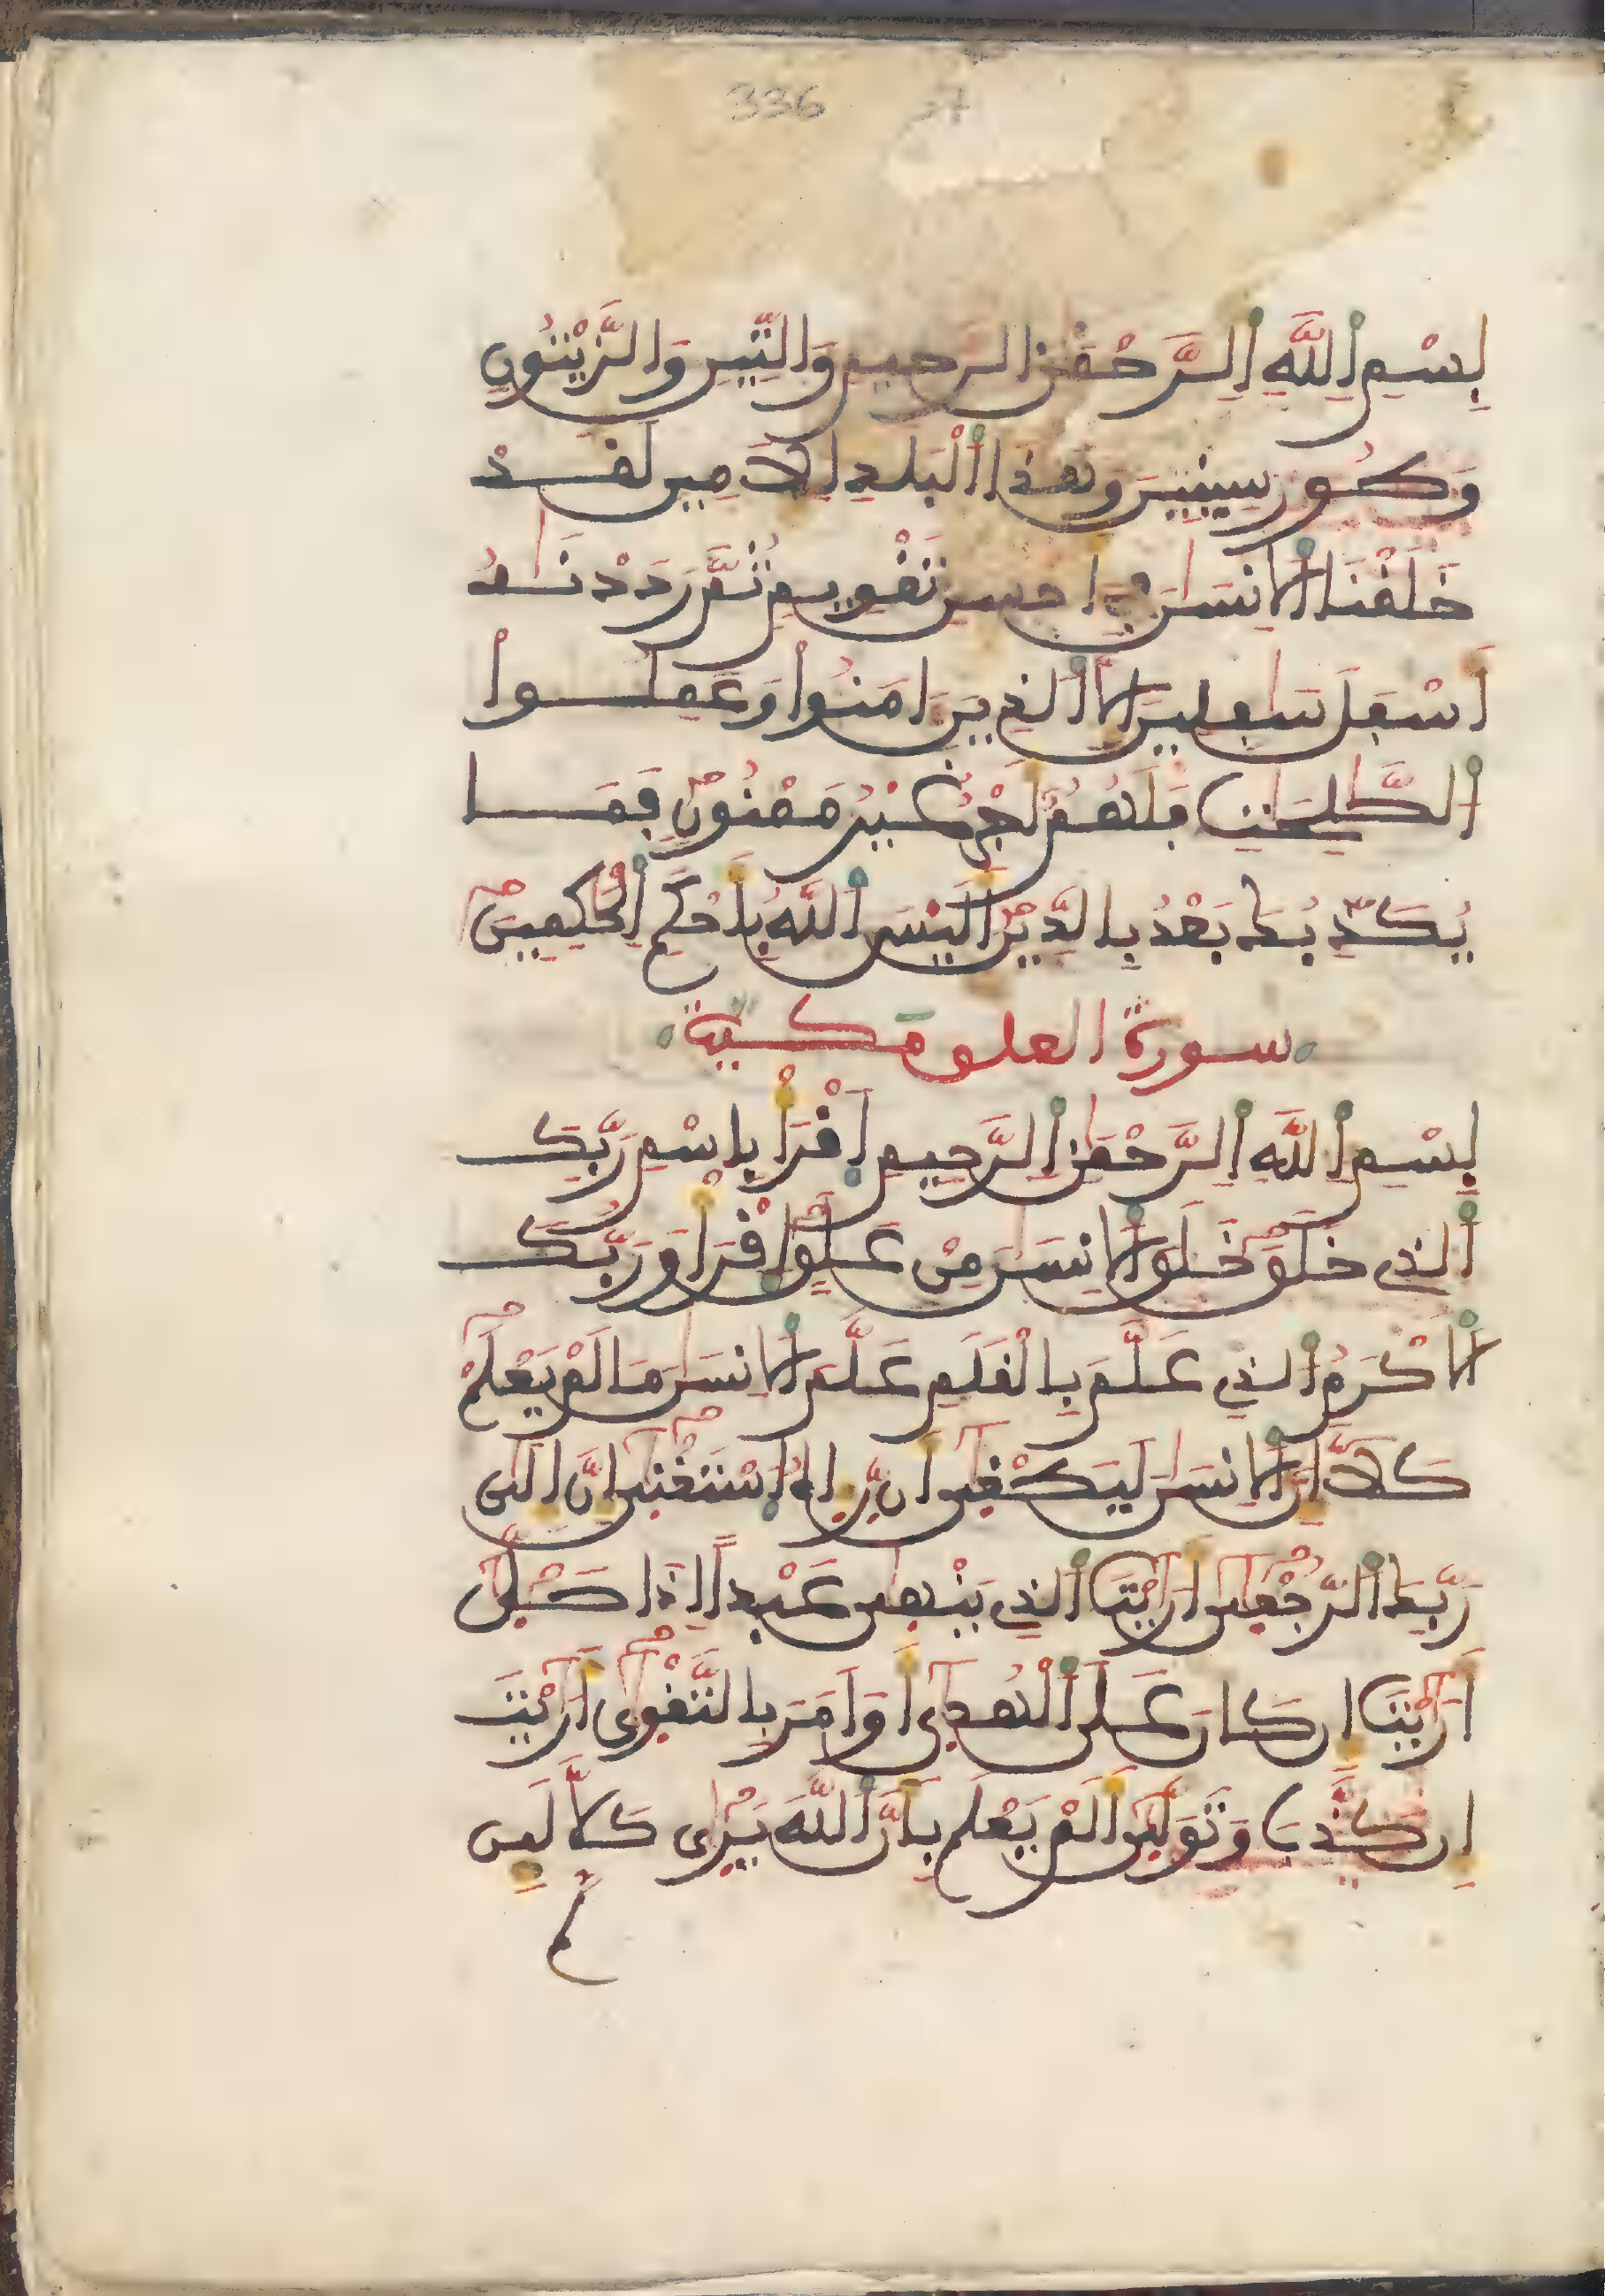 336 37
بِسْمِ اِللَّهِ اِلرَّحْمَٰنِ الرَّحِيمِ وَالتِّينِ وَالزَّيْتُونِ
وَطُورِ سِينِينَ وَهَٰذَا اَلْبَلَدِ اِلَامِينِ لَقَدْ
خَلَقْنَا اَلِانسَٰنَ فِي أَحْسَنِ تَقْوِيمٍ ثُمَّ رَدَدْنَٰهُ
أَسْفَلَ سَٰفِلِينَ إِلَّا اَلذِينَ ءَامَنُواْ وَعَمِلُواْ
اُلصَّٰلِحَٰتِ فَلَهُمُۥ أَجْرٌ غَيْرُ مَمْنُونٍ فَمَا
يُكَذِّبُكَ بَعْدُ بِالدِّينِ أَلَيْسَ اَللَّهُ بِأَحْكَمِ اِلْحَٰكِمِينَ
سورة العلق مكية
بِسْمِ اِللَّهِ اِلرَّحْمَٰنِ اِلرَّحِيمِ اِقْرَأْ بِاسْمِ رَبِّكَ
اَلذِي خَلَقَ خَلَقَ اَلِانسَٰنَ مِنْ عَلَقٍ اِقْرَأْ وَرَبُّكَ
اَلَاكْرَمُ اُلذِي عَلَّمَ بِالْقَلَمِ عَلَّمَ اَلِانسَٰنَ مَا لَمْ يَعْلَمْ
كَلَّا إِنَّ اَلِانسَٰنَ لَيَطْغَىٰ أَن رَّءَاهُ اُسْتَغْنَىٰ إِنَّ إِلَىٰ
رَبِّكَ اَلرُّجْعَىٰ أَرَٰيْتَ اَلذِي يَنْهَىٰ عَبْداً إِذَا صَلَّىٰ
أَرَٰيْتَ إِن كَانَ عَلَى اَلْهُدَىٰ أَوَ اَمَرَ بِالتَّقْوَىٰ أَرَٰيْتَ
إِن كَذَّبَ وَتَوَلَّىٰ أَلَمْ يَعْلَم بِأَنَّ اَللَّهَ يَرَىٰ كَلَّا لَئِن
لم